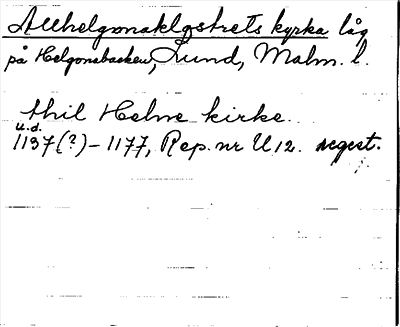 Allhelgonaklostrets kyrka låg
på Helgonabacken, Lund, Malm. l.
thil Helne kirke.
u.d.
1137(?)-1177, Rep. nr U 12. regest.